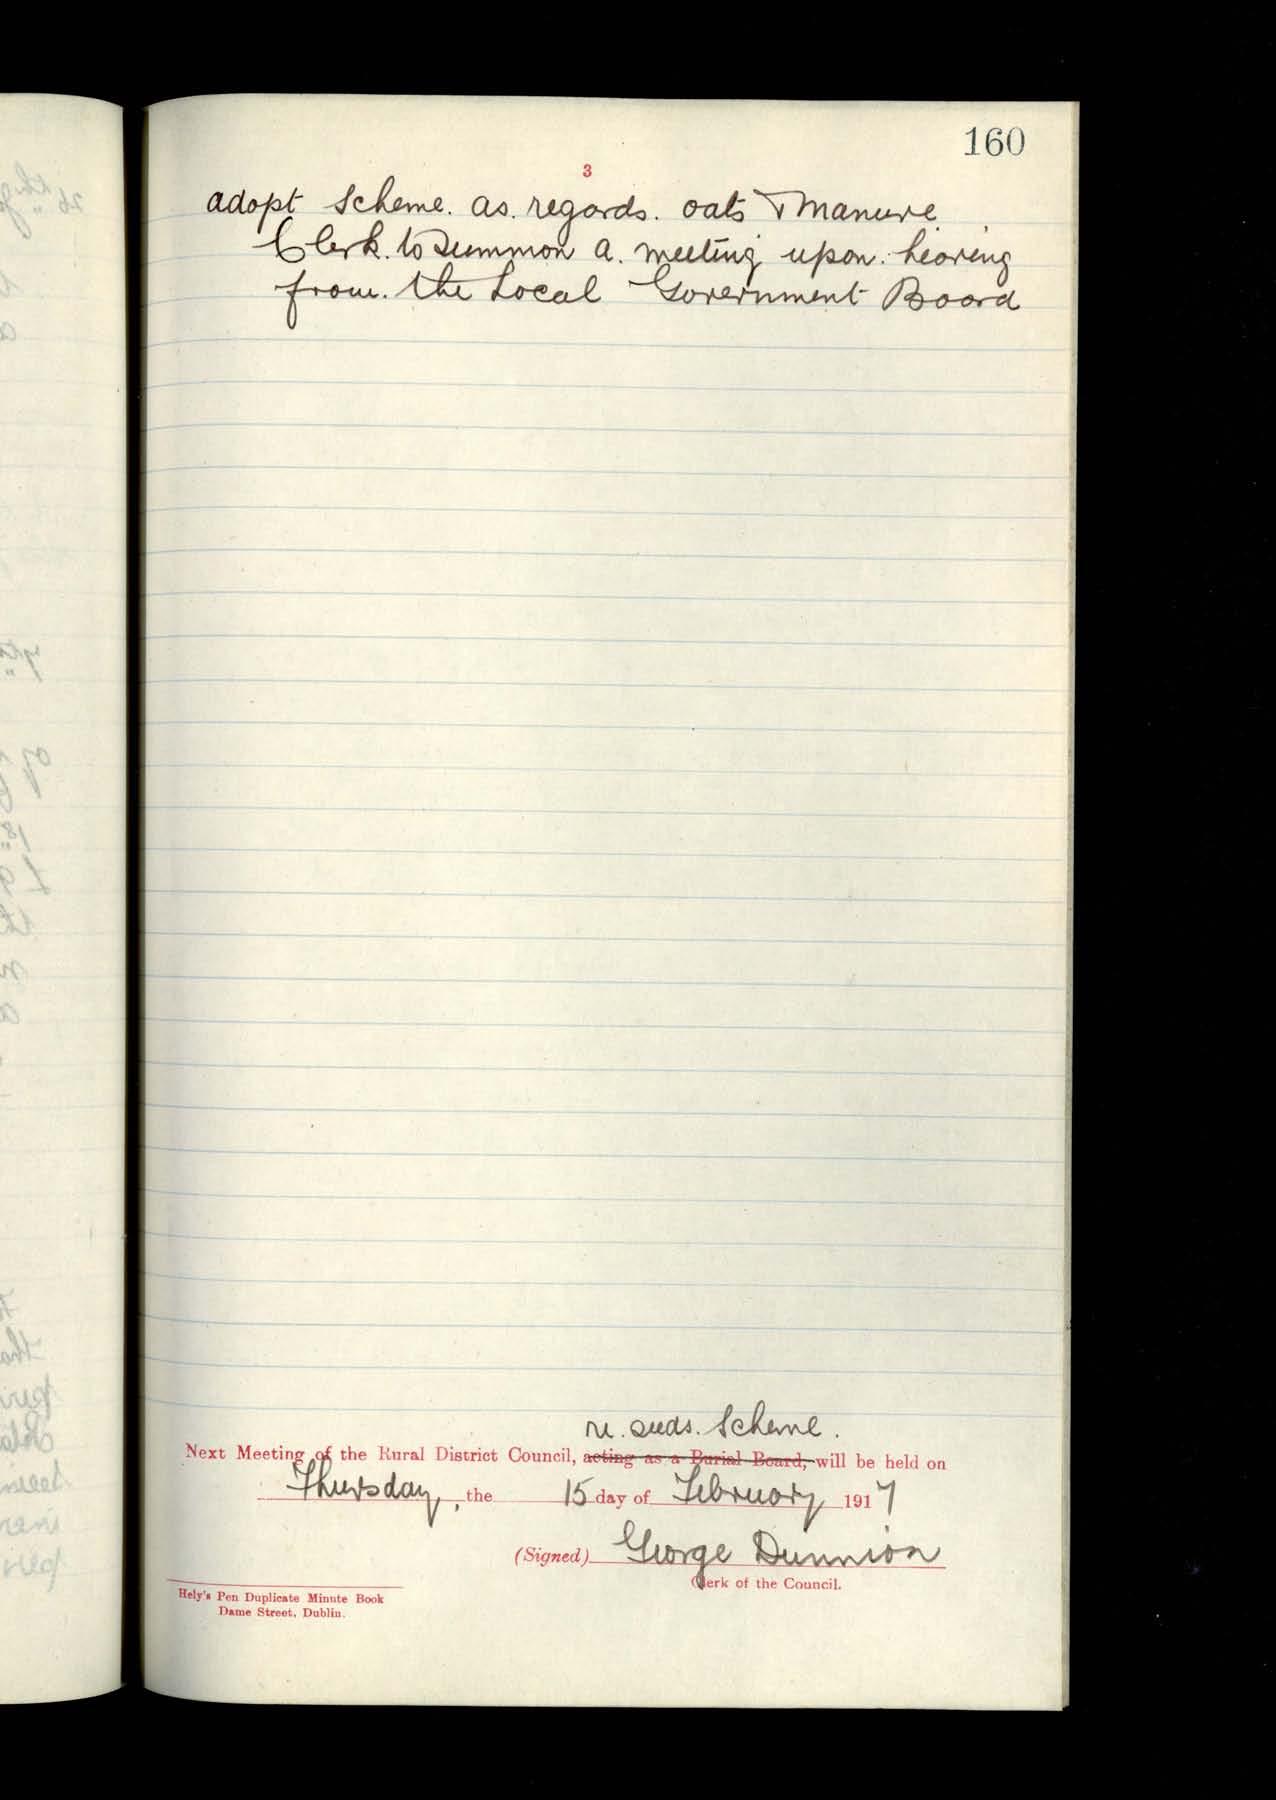 160
3
adopt scheme. as. regards. oats & manure
Clerk. to summon a. meeting upon. hearing
from. the Local Government Board
re. seeds. scheme.
Next Meeting of the Rural District Council, acting as a Burial Board, will be held on
Thursday, the 15 day of February 1917
(Signed) George Dunnion
Clerk of the Council.
Hely's Pen Duplicate Minute Book
Dame Street, Dublin.